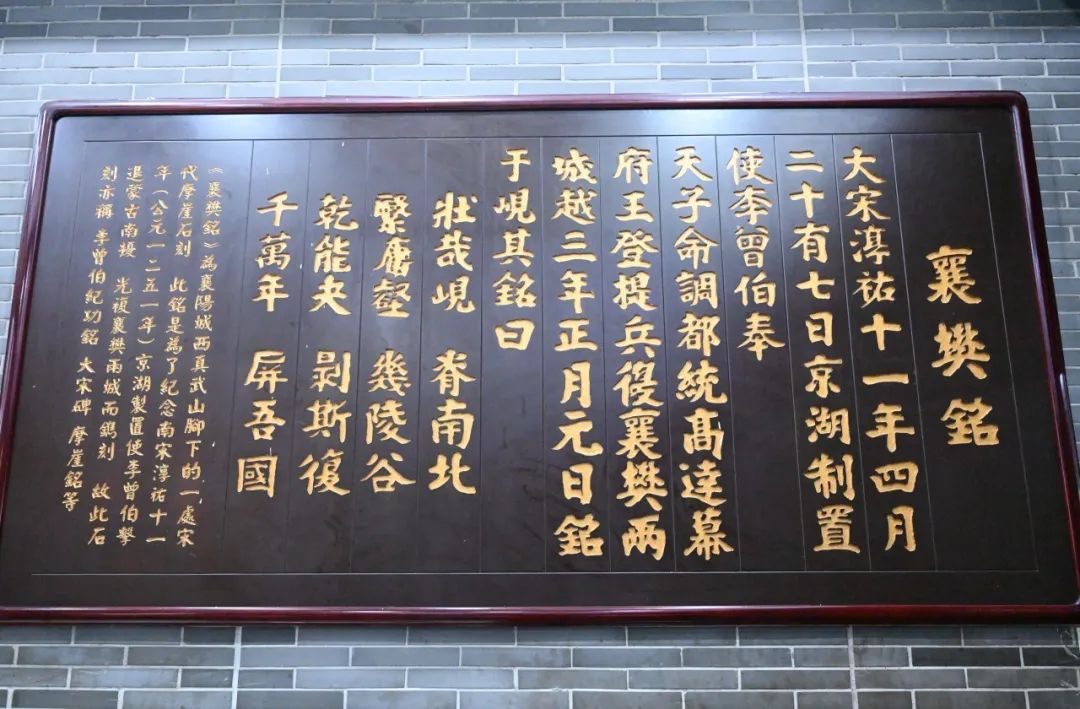 襄樊銘
大宋淳祐十一年四月
二十有七日京湖制置
使李曾伯奉
天子命調都統高達幕
府王登提兵復襄樊兩
城越三年正月元日銘
于峴其銘曰
壯哉峴 脊南北
繄墉壑 幾陵谷
乾能夬 剝斯復
千萬年 屏吾國
《襄樊銘》為襄陽城西真武山腳下的一處宋
代摩崖石刻 此銘是為了紀念南宋淳祐十一
年(公元一二五一年)京湖製置使李曾伯擊
退蒙古南擾 光複襄樊兩城而鐫刻 故此石
刻亦稱 李曾伯紀功銘 大宋碑 摩崖銘等